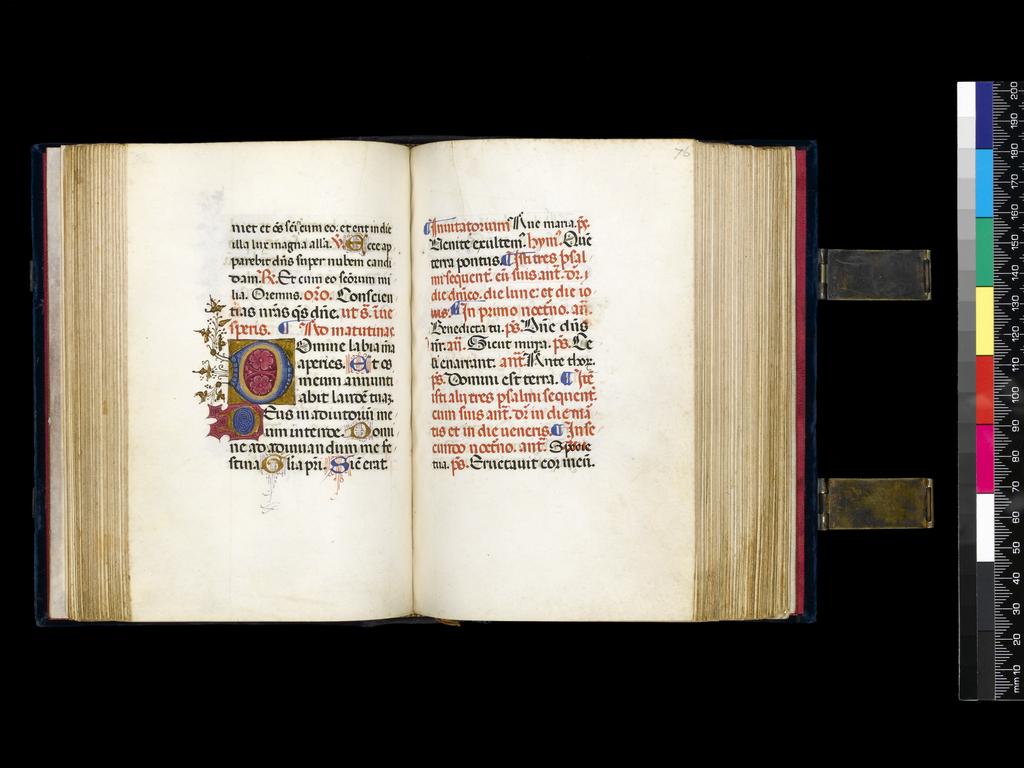 niet et oẽs scĩ cum eo. et erit in die
illa lux magna alľa. ꝟ. Ecce ap
parebit dñs super nubem candi
dam. R. Et cum eo scõrum mi
lia. Oremus. oro. Conscien
tias nr̃as q̃s dñe. ut s̃. in ue
speris. ¶ Ad matutinac
Domine labia m̃a
aperies. Et os
meum annunti
abit laudẽ tuaz.
Deus in adiutoriũ me
um intende. Domi
ne ad adiuuandum me fe
stina Glia pr̃i. Sic̃ erat.
76
¶ Inuitatorium Aue maria. p̃s.
Venite exultem̃. hym̃. Que
terra pontus ¶ Isti tres psal
mi sequent̃. cũ suis ant̃. dr̃. i
die dñico. die lune: et die io
uis. ¶ In primo noct̃no. añ.
Benedicta tu. p̃s. Dñe dñs
nr̃. añ. Sicut mirra. p̃s. Ce
li enarrant. ant̃. Ante thor.
p̃s. Domini est terra. ¶ Itẽ
isti alij tres psalmi sequent̃.
cum suis ant̃. dr̃ in die ma
tis et in die ueneris. ¶ In se
cundo noct̃no. ant̃. Specie
tua. p̃s. Eructauit cor meũ.
mm 10 20 30 40 50 60 70 80 90 100 110 120 130 140 150 160 170 180 190 200